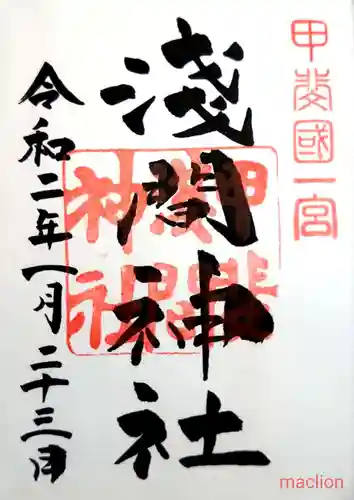 甲斐國一宮
淺間神社
令和二年一月二十三日
maclion